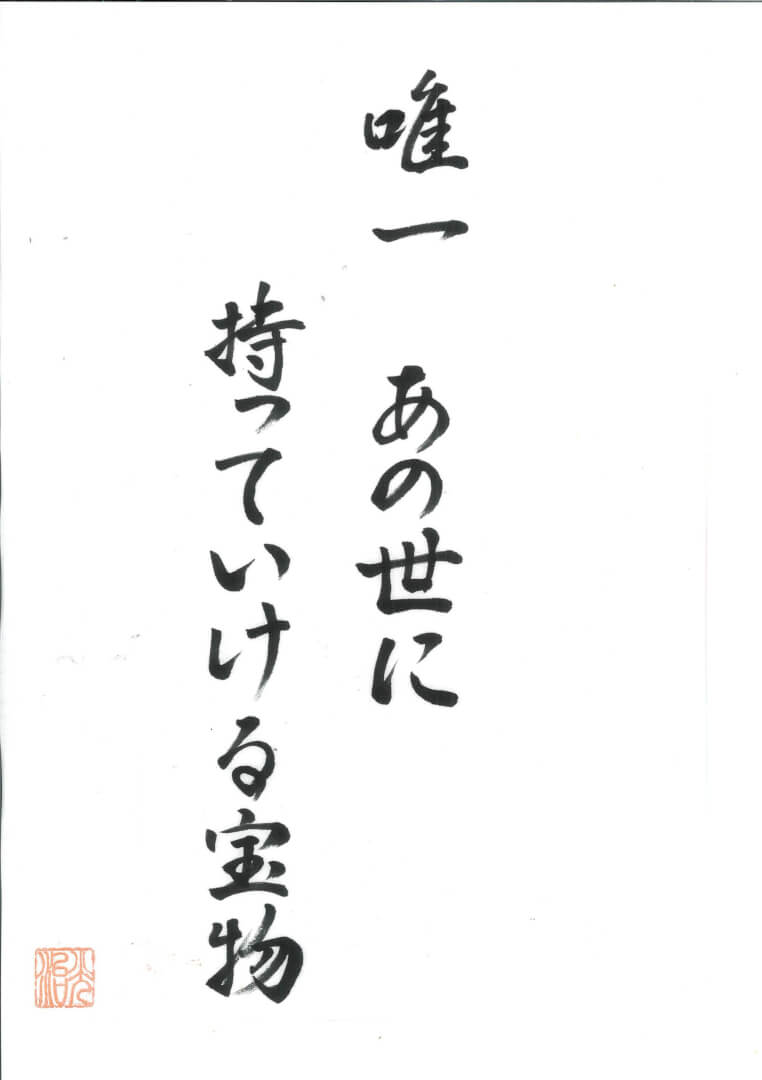 唯一 あの世に
持っていける宝物